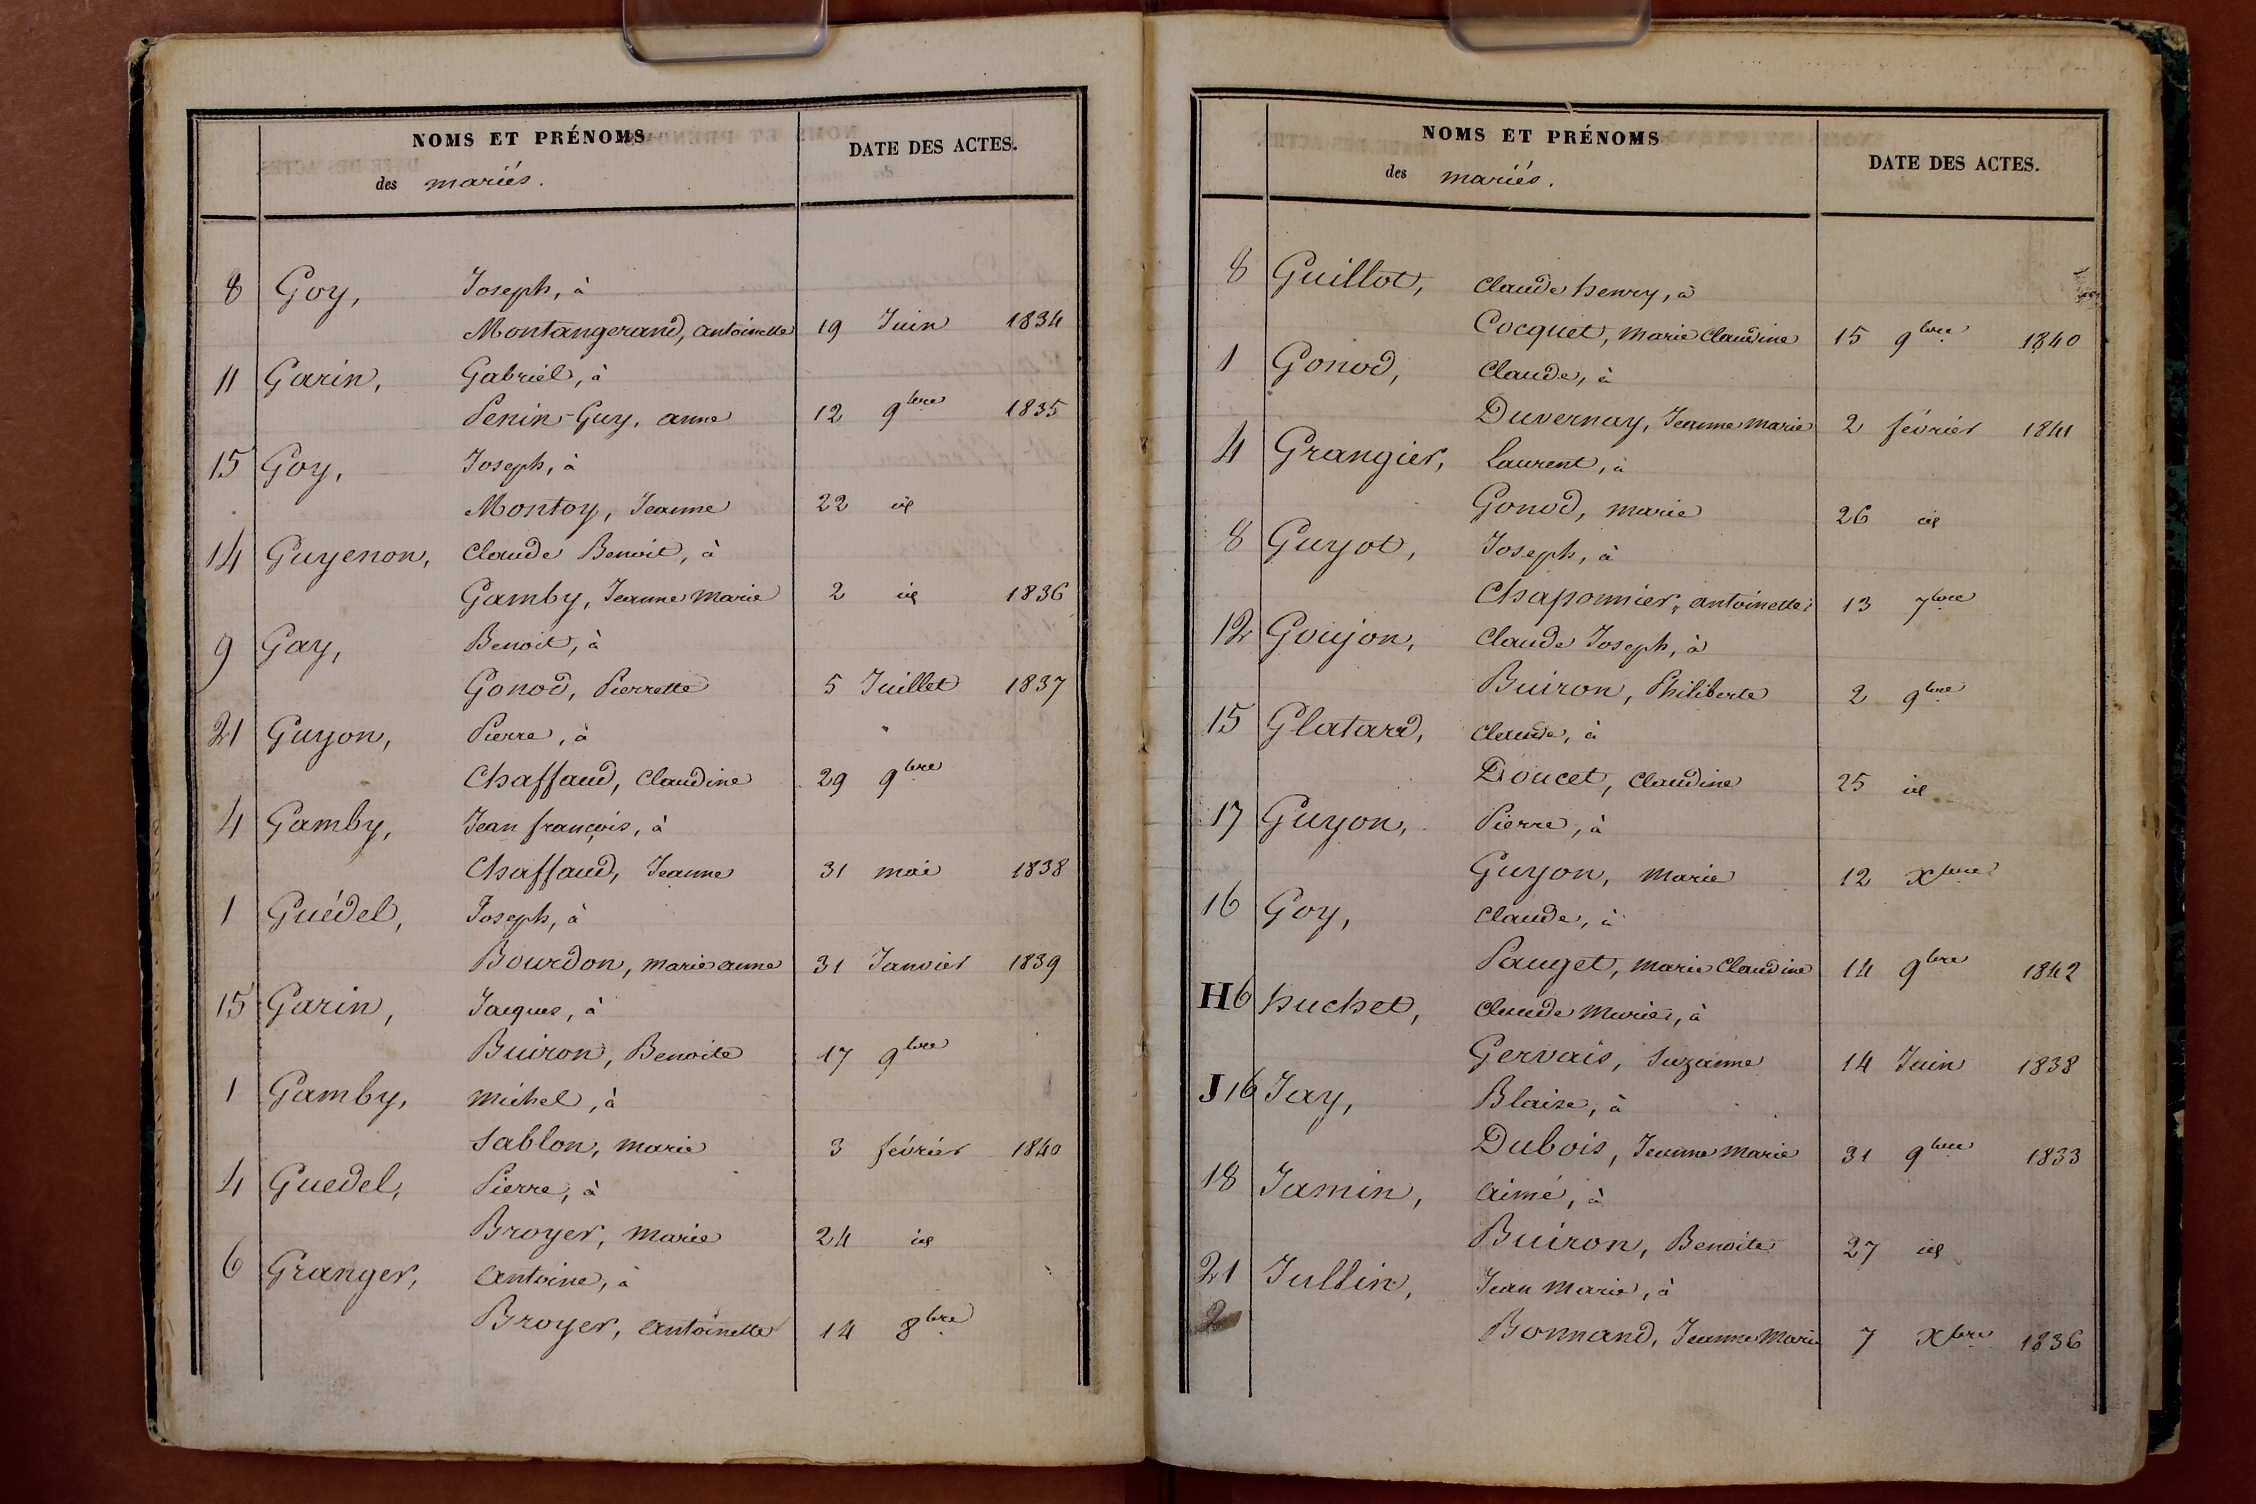 NOMS ET PRÉNOMS
des mariés.
DATE DES ACTES.
8 Goy, Joseph, à
Montangerand, antoinette 19 Juin 1834
11 Garin, Gabriel, à
Penin-Guy, anne 12 9bre 1835
15 Goy, Joseph, à
Montoy, Jeanne 22 id
14 Guyenon, Claude Benoit, à
Gamby, Jeanne Marie 2 id 1836
9 Gay, Benoit, à
Gonod, Pierrette 5 Juillet 1837
21 Guyon, Pierre, à
Chaffaud, Claudine 29 9bre
4 Gamby, Jean françois, à
Chaffaud, Jeanne 31 mai 1838
1 Guédel, Joseph, à
Bourdon, marie anne 31 Janvier 1839
15 Garin, Jacques, à
Buiron, Benoite 17 9bre
1 Gamby, Michel, à
Sablon, marie 3 février 1840
4 Guedel, Pierre, à
Broyer, Marie 24 id
6 Granger, antoine, à
Broyer, antoinette 14 8bre
NOMS ET PRÉNOMS
des mariés.
DATE DES ACTES.
8 Guillot, Claude henry, à
Cocquet, Marie Claudine 15 9bre 1840
1 Gonod, Claude, à
Duvernay, Jeanne marie 2 février 1841
4 Grangier, Laurent, à
Gonod, marie 26 id
8 Guyot, Joseph, à
Chaponnier, antoinette 13 7bre
12 Goujon, Claude Joseph, à
Buiron, Philiberte 2 9bre
15 Glatard, Claude, à
Doucet, Claudine 25 id
17 Guyon, Pierre, à
Guyon, Marie 12 Xbre
16 Goy, Claude, à
Pauget, Marie Claudine 14 9bre 1842
H 6 huchet, Claude Marie, à
Gervais, Suzanne 14 Juin 1838
J 16 Jay, Blaise, à
Dubois, Jeanne Marie 31 9bre 1833
18 Jamin, aimé, à
Buiron, Benoite 27 id
21 Jullin, Jean Marie, à
2 Bonnand, Jeanne Marie 7 Xbre 1836